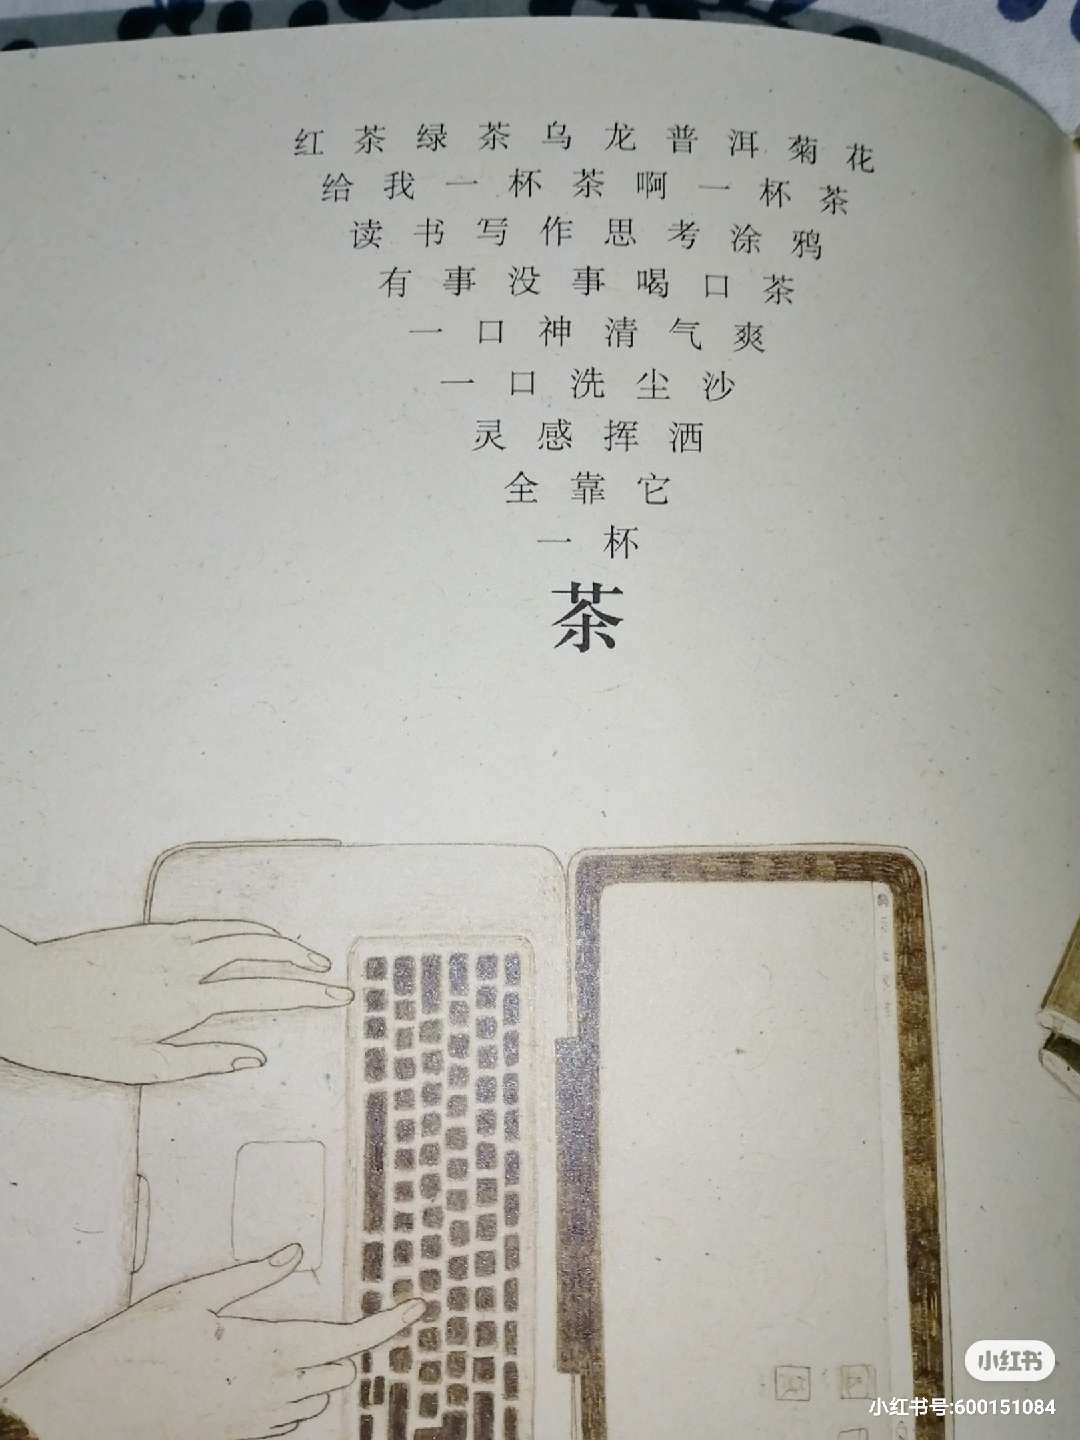 红茶绿茶乌龙普洱菊花
给我一杯茶啊一杯茶
读书写作思考涂鸦
有事没事喝口茶
一口神清气爽
一口洗尘沙
灵感挥洒
全靠它
一杯
茶
小红书
小红书号:600151084